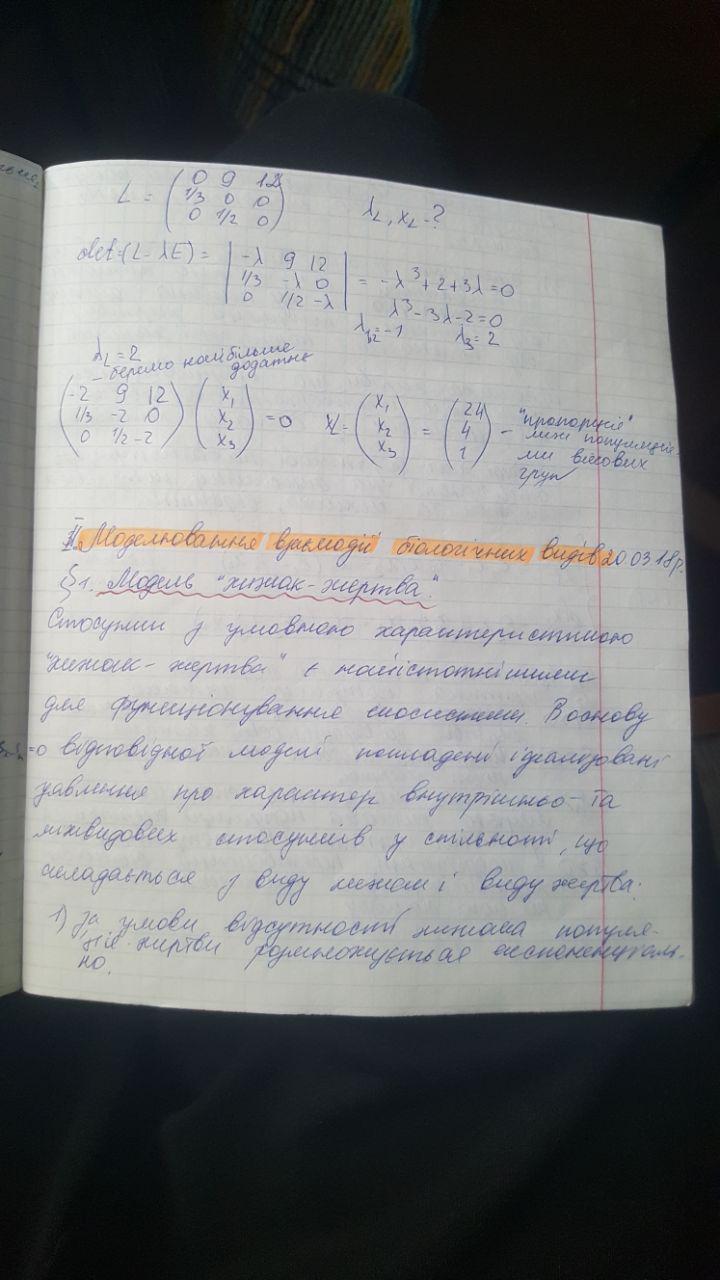 L = ( 0 9 12 ; 1/3 0 0 ; 0 1/2 0 ) λ_L, x_L - ?
det (L - λE) = | -λ 9 12 ; 1/3 -λ 0 ; 0 1/2 -λ | = -λ³ + 2 + 3λ = 0
λ³ - 3λ - 2 = 0
λ₁,₂ = -1 λ₃ = 2
λ_L = 2
- беремо найбільше
додатнє
( -2 9 12 ; 1/3 -2 0 ; 0 1/2 -2 ) ( x₁ ; x₂ ; x₃ ) = 0 x_L = ( x₁ ; x₂ ; x₃ ) = ( 24 ; 4 ; 1 ) - "пропорція"
між популяція-
ми вікових
груп
II. Моделювання взаємодії біологічних видів 20.03.18р.
§1. Модель "хижак-жертва".
Стосунки з умовною характеристикою
"хижак-жертва" є найістотнішими
для функціонування екосистеми. В основу
=0 відповідної моделі покладені ідеалізовані
уявлення про характер внутрішньо- та
міжвидових стосунків у спільності, що
складається з виду хижак і виду жертва:
1) За умови відсутності хижака популя-
ція жертви розмножується експоненціаль-
но.